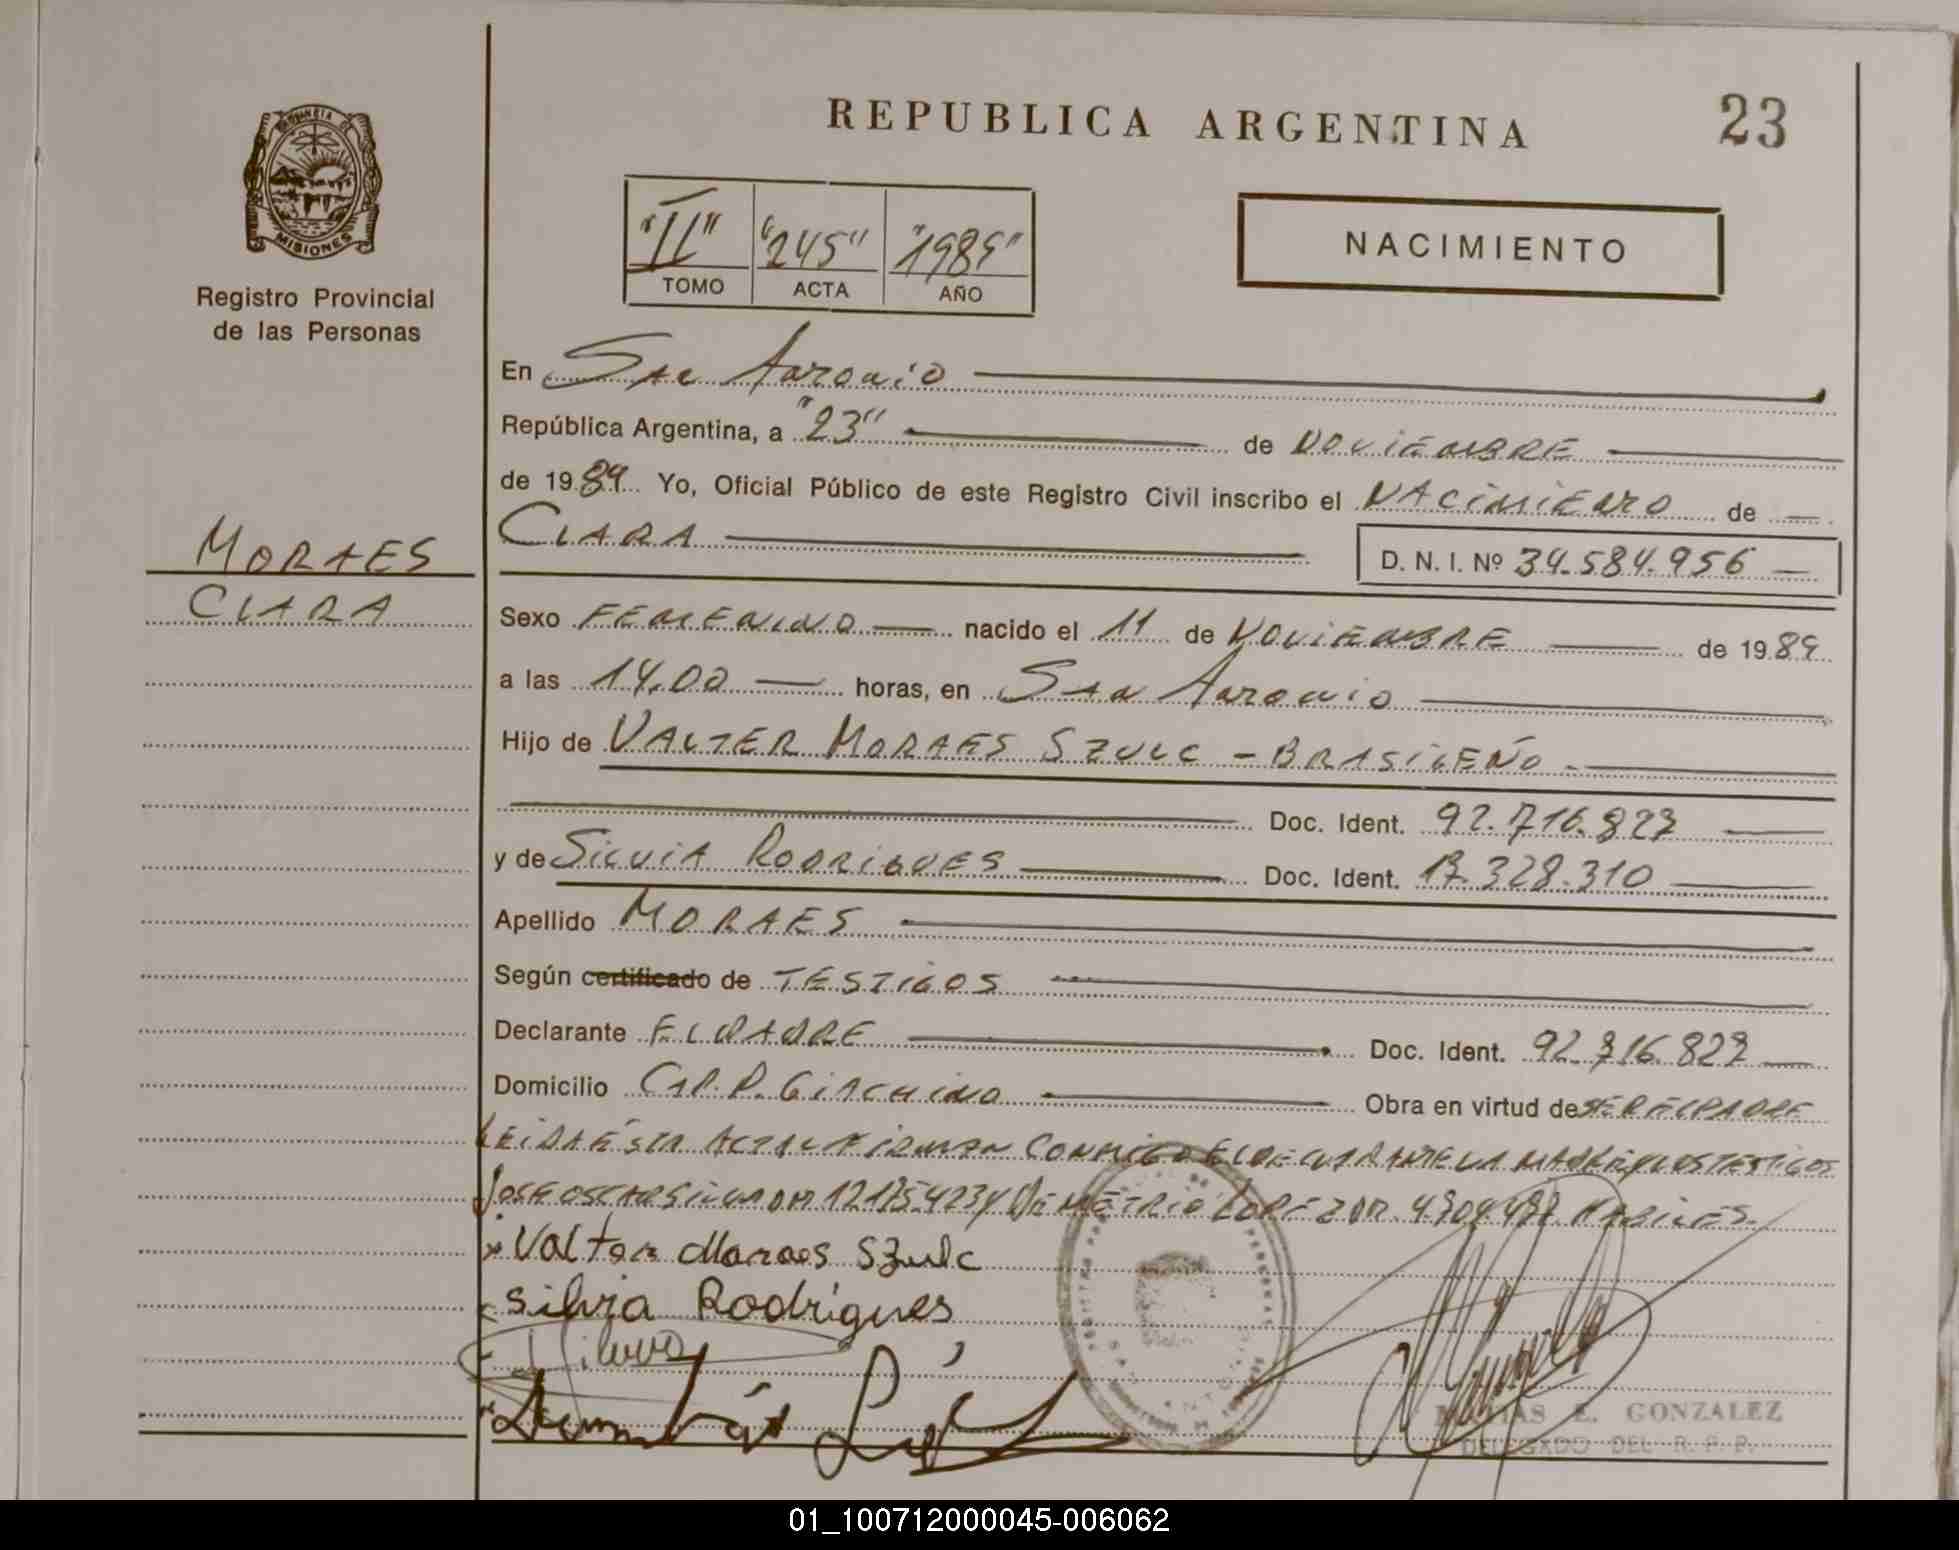 REPUBLICA ARGENTINA
23
PROVINCIA DE
MISIONES
Registro Provincial
de las Personas
"II" "245" "1989"
TOMO ACTA AÑO
NACIMIENTO
En San Antonio
República Argentina, a "23" de NOVIEMBRE
de 1989 Yo, Oficial Público de este Registro Civil inscribo el NACIMIENTO de
CLARA
D. N. I. Nº 34.584.956
MORAES
CLARA
Sexo FEMENINO nacido el 11 de NOVIEMBRE de 1989
a las 14.00 horas, en San Antonio
Hijo de VALTER MORAES SZULC - BRASILEÑO
Doc. Ident. 92.716.827
y de SILVIA RODRIGUES Doc. Ident. 17.328.310
Apellido MORAES
Según certificado de TESTIGOS
Declarante EL PADRE Doc. Ident. 92.716.827
Domicilio CAP. P. GIACHINO Obra en virtud de SER EL PADRE
LEIDA ÉSTA ACTA LA FIRMAN CONMIGO EL DECLARANTE LA MADRE Y LOS TESTIGOS
JOSE OSCAR SILVA DM Y DEMETRIO LOPEZ DM. HABILES.
Valter Moraes Szulc
Silvia Rodrigues
MATIAS E. GONZALEZ
DELEGADO DEL R. P. P.
01_100712000045-006062